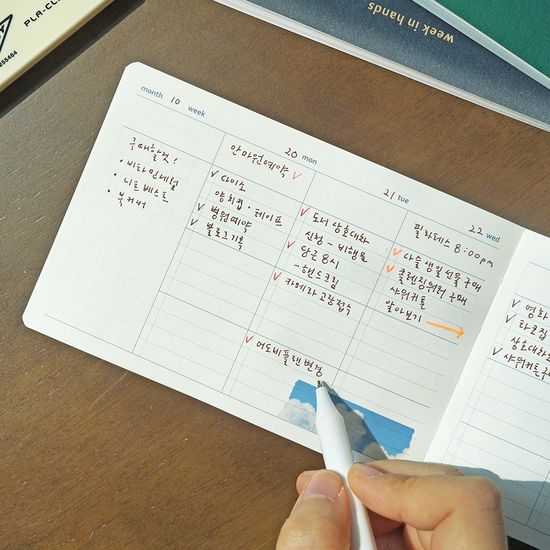 PLR-CL
255464
week in hands
month 10 week
구매할것!
· 비타민세럼
· 니트 베스트
· 북커버
20 mon
안마원예약 ✓
✓ 다이소
양치컵 · 테이프
✓ 병원예약
✓ 블로그기록
21 tue
✓ 도서 상호대차
신청 - 비행운
✓ 당근 8시
- 핸드크림
✓ 카메라 고장접수
✓ 어도비플랜변경
22 wed
필라테스 8:00pm
✓ 다솔 생일선물 구매
✓ 클렌징워터 구매
샤워커튼
알아보기 →
✓ 영화
✓ 타로집
상호대차
✓ 샤워커튼구